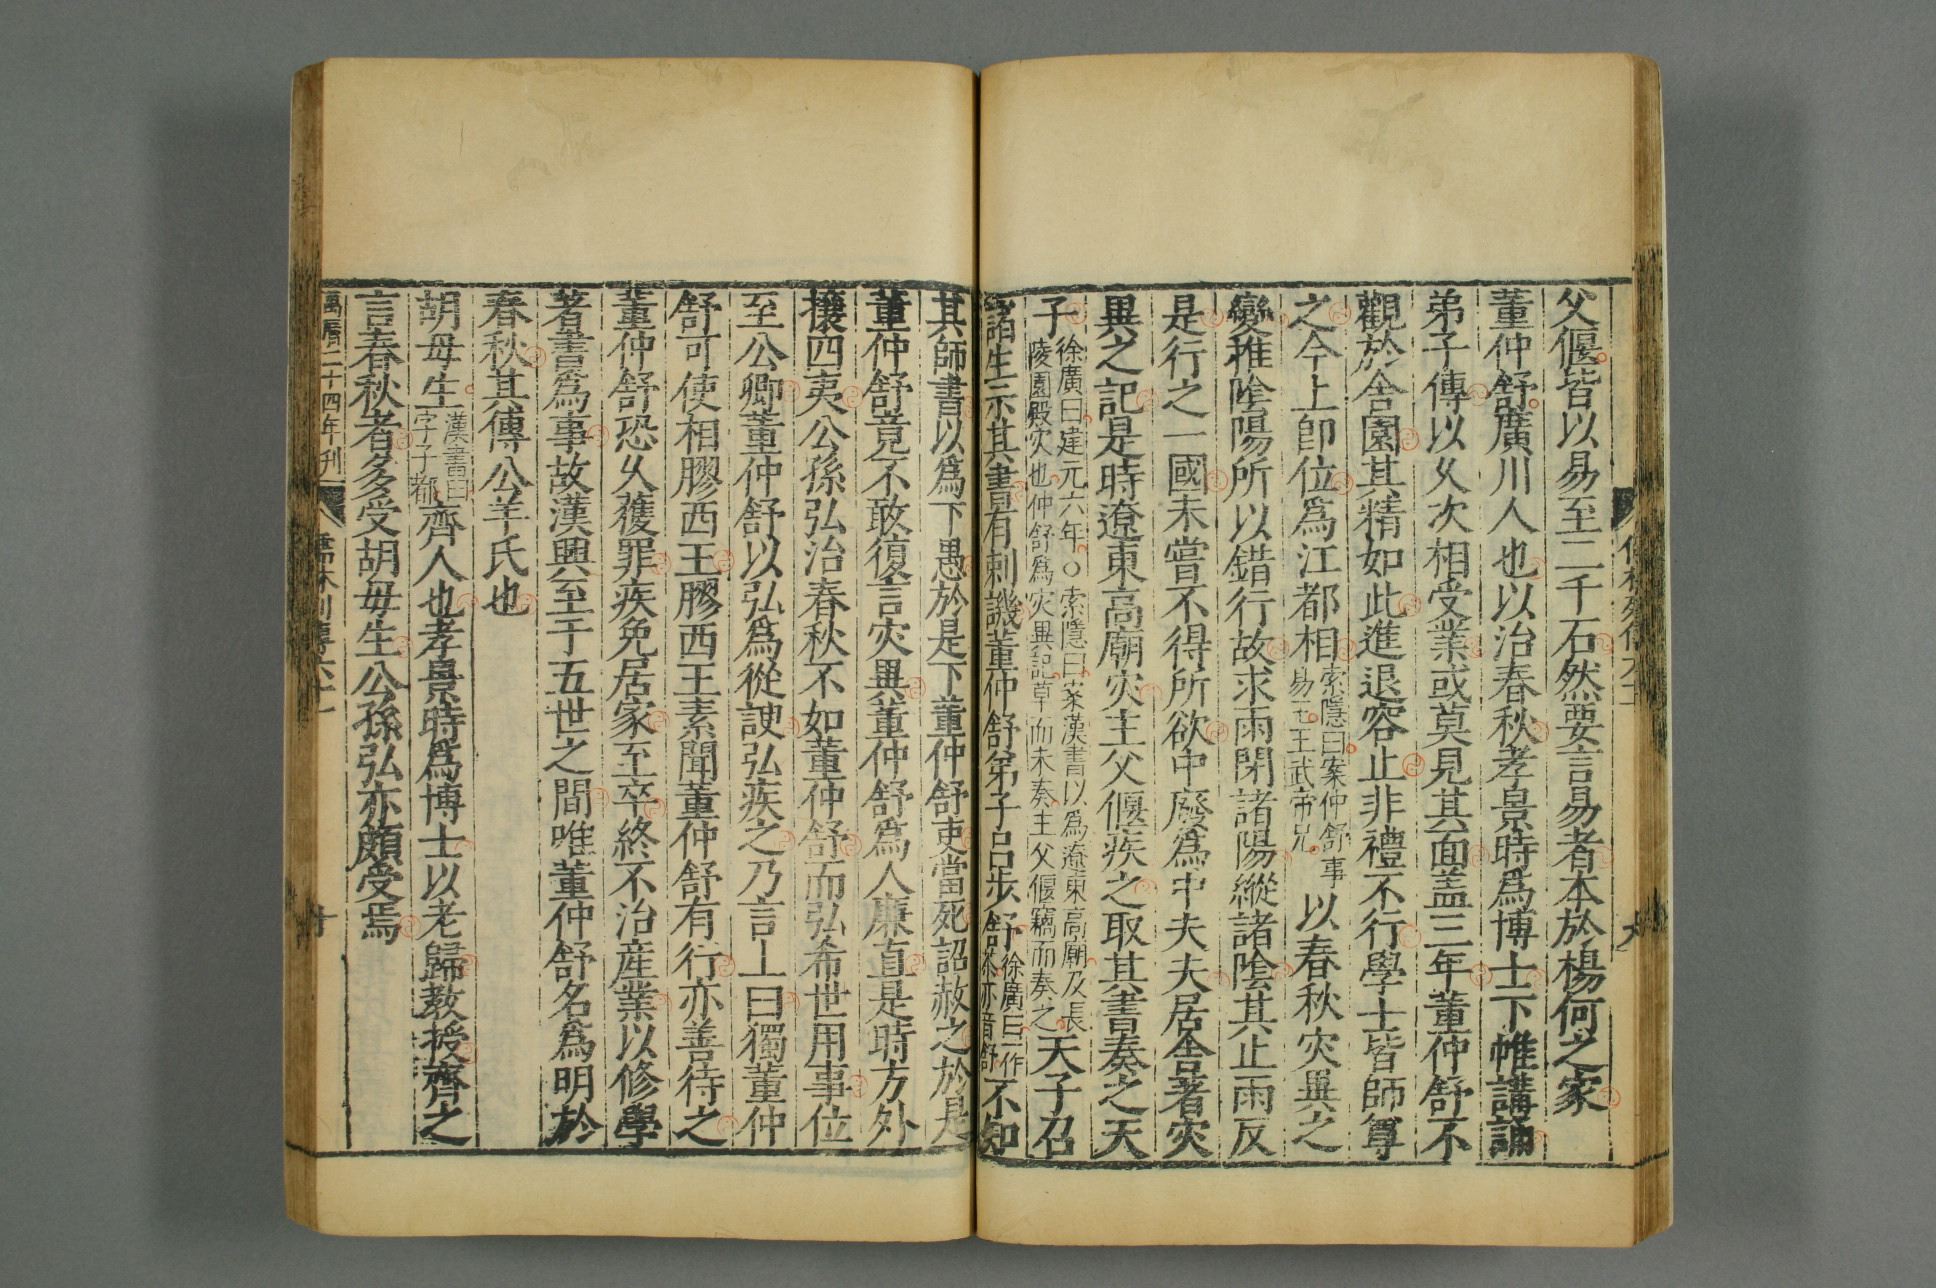 父偃皆以易至二千石然要言易者本於楊何之家
董仲舒廣川人也以治春秋孝景時爲博士下帷講誦
弟子傳以久次相受業或莫見其面盖三年董仲舒不
觀於舍園其精如此進退容止非禮不行學士皆師尊
之今上即位爲江都相索隱曰案仲舒事易王王武帝兄以春秋灾異之
變推陰陽所以錯行故求雨閉諸陽縱諸陰其止雨反
是行之一國未嘗不得所欲中廢爲中大夫居舍著灾
異之記是時遼東高廟灾主父偃疾之取其書奏之天
子徐廣曰建元六年○索隱曰案漢書以爲遼東高廟及長陵園殿灾也仲舒爲灾異記草而未奏主父偃竊而奏之天子召
諸生示其書有刺譏董仲舒弟子呂步舒徐廣曰一作茶亦音舒不知
其師書以爲下愚於是下董仲舒吏當死詔赦之於是
董仲舒竟不敢復言灾異董仲舒爲人廉直是時方外
攘四夷公孫弘治春秋不如董仲舒而弘希世用事位
至公卿董仲舒以弘爲從諛弘疾之乃言上曰獨董仲
舒可使相膠西王膠西王素聞董仲舒有行亦善待之
董仲舒恐久獲罪疾免居家至卒終不治産業以修學
著書爲事故漢興至于五世之間唯董仲舒名爲明於
春秋其傳公羊氏也
胡毋生漢書曰字子都齊人也孝景時爲博士以老歸教授齊之
言春秋者多受胡毋生公孫弘亦頗受焉
萬曆二十四年刊
儒林列傳六十一